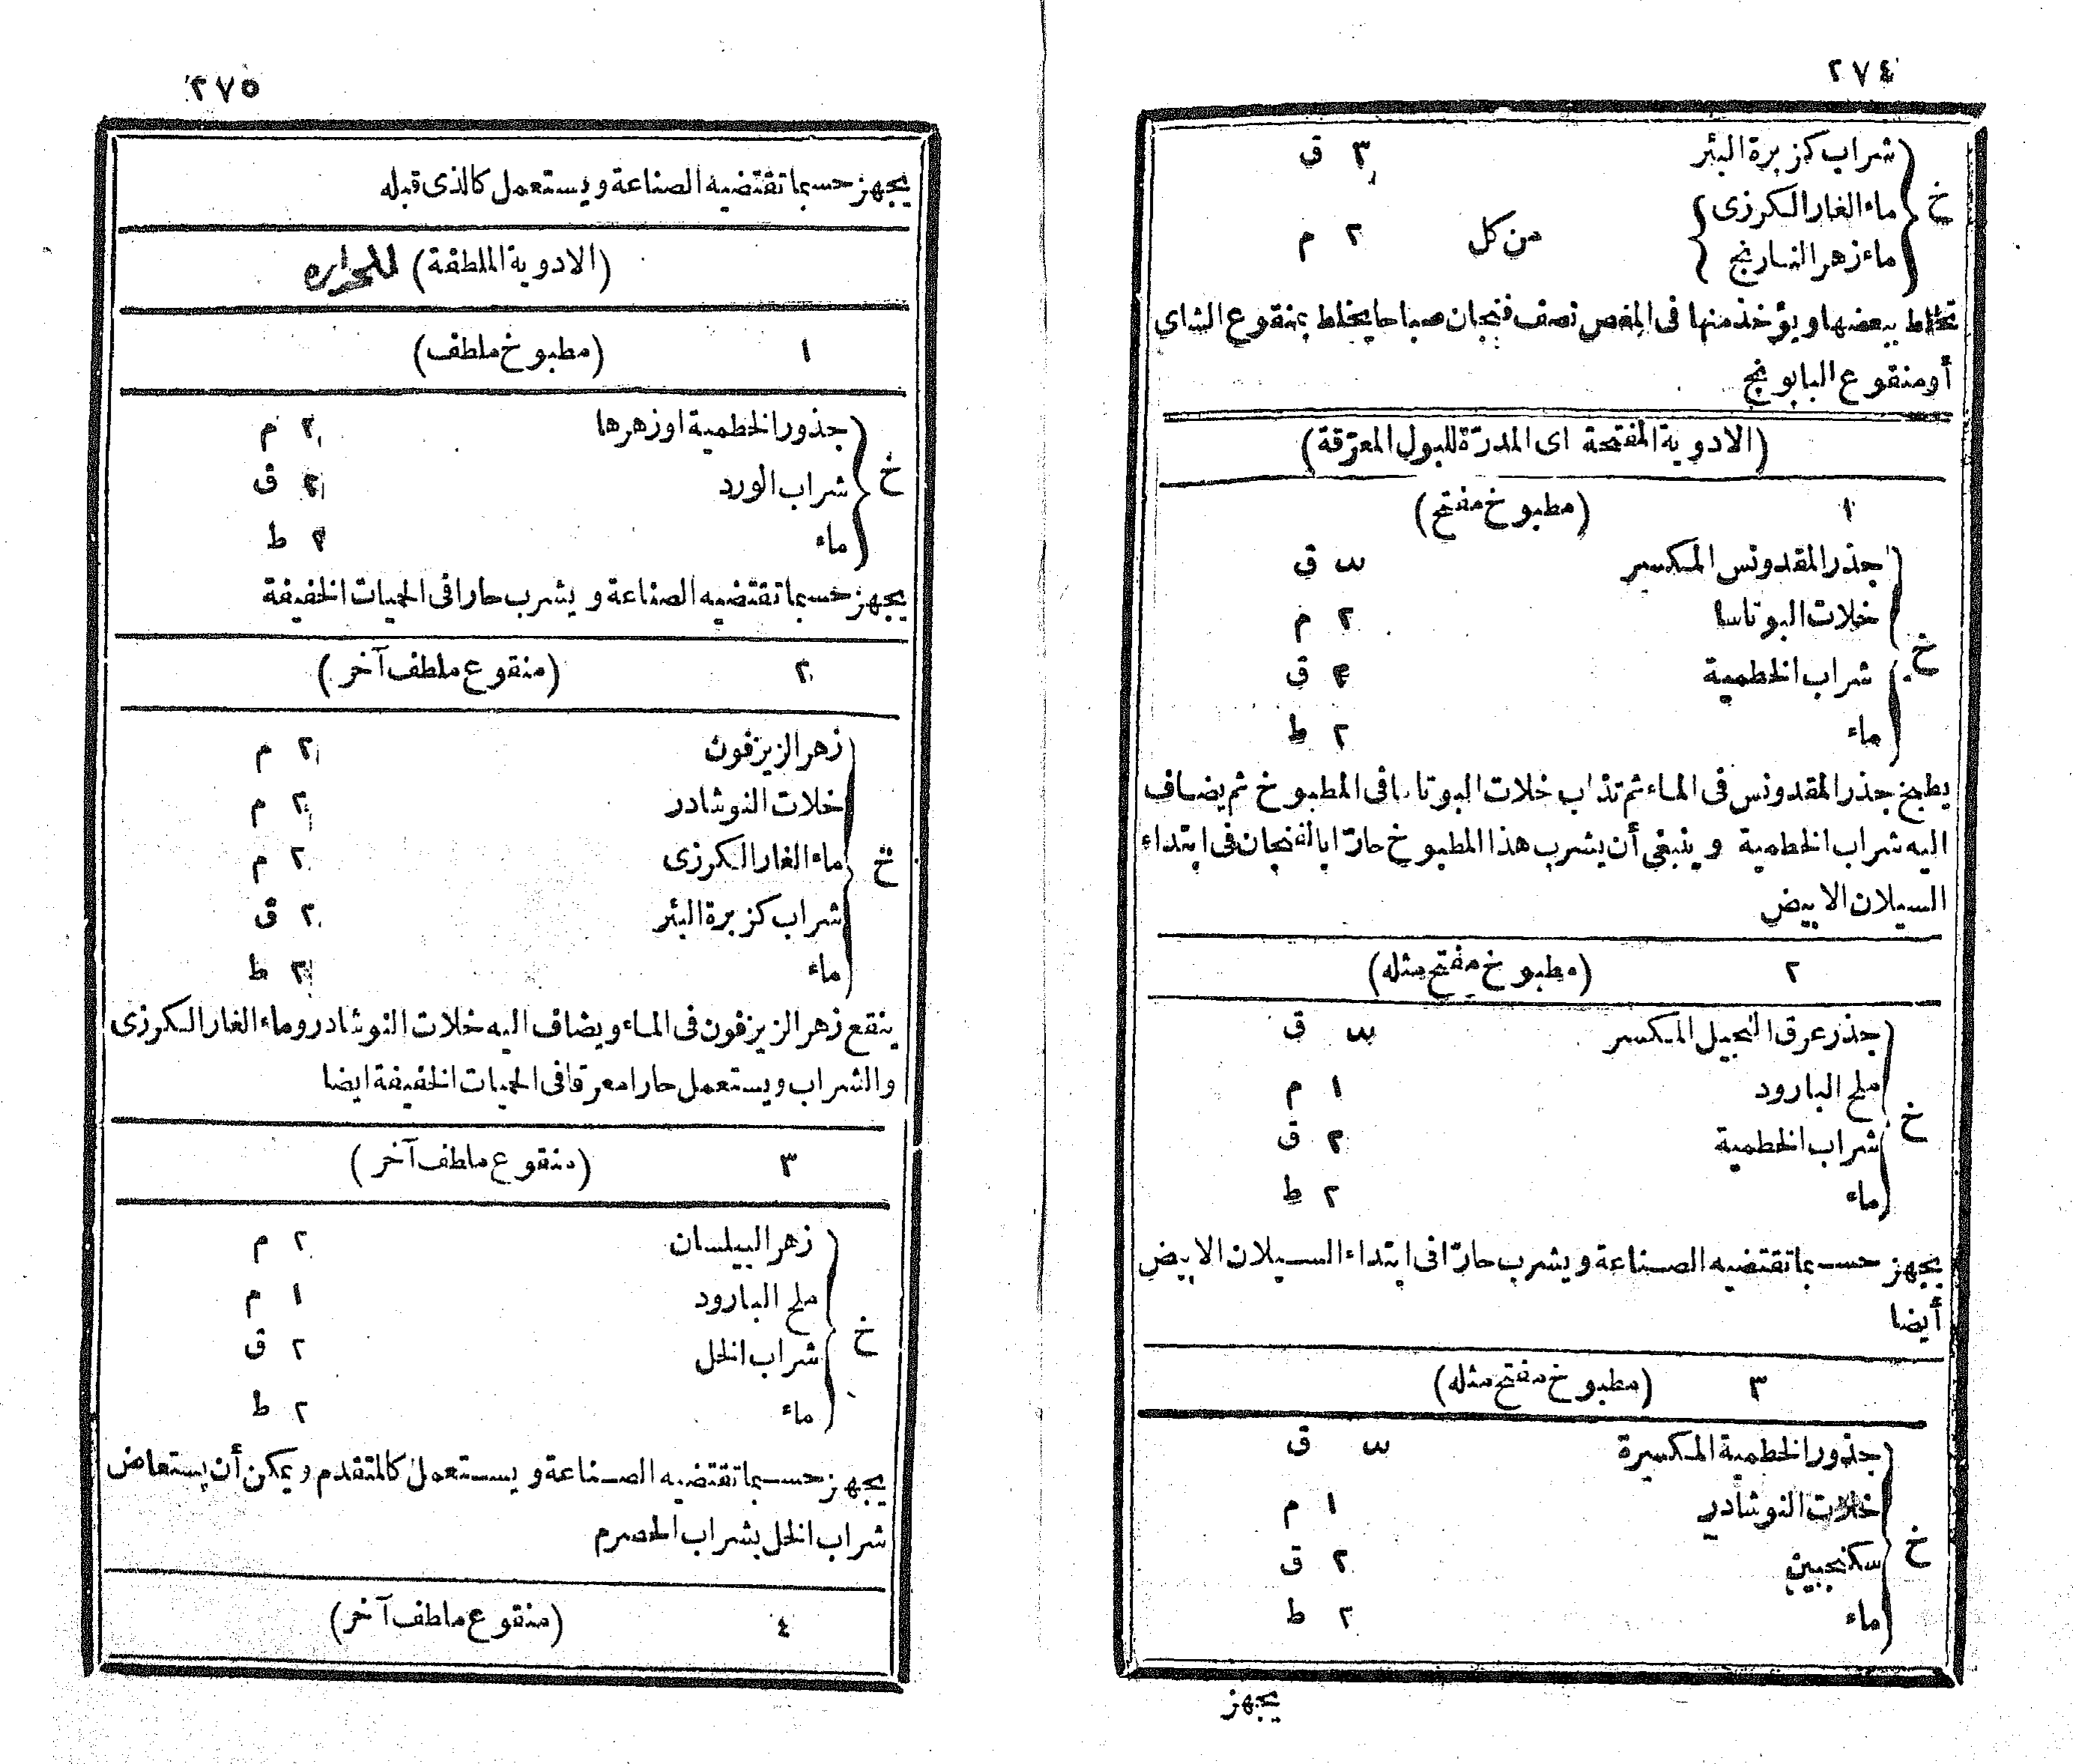 ٢٧٤
شراب كزبرة البئر ٣ ق
خ
ماء الغار الكرزى
من كل ٢ م
ماء زهر النارنج
تخلط ببعضها ويؤخذ منها فى المغص نصف فنجان صباحا يخلط بمنقوع الشاى
أو منقوع البابونج
(الادوية المفتحة اى المدرّة للبول المعرّقة)
١ (مطبوخ مفتح)
جذر المقدونس المكسير س ق
خلات البوتاسا ٢ م
خ
شراب الخطمية ٢ ق
ماء ٢ ط
يطبخ جذر المقدونس فى الماء ثم تذاب خلات البوتاسا فى المطبوخ ثم يضاف
اليه شراب الخطمية وينبغى أن يشرب هذا المطبوخ حارّا بالفنجان فى ابتداء
السيلان الابيض
٢ (مطبوخ مفتح مثله)
جذر عرق النجيل المكسر س ق
ملح البارود ١ م
خ
شراب الخطمية ٢ ق
ماء ٢ ط
يجهز حسبما تقتضيه الصناعة ويشرب حارّا فى ابتداء السيلان الابيض
أيضا
٣ (مطبوخ مفتح مثله)
جذور الخطمية المكسيرة س ق
خلات النوشادر ١ م
خ
سكنجبين ٢ ق
ماء ٢ ط
يجهز
٢٧٥
يجهز حسبما تقتضيه الصناعة ويستعمل كالذى قبله
(الادوية الملطفة) للحراره
١ (مطبوخ ملطف)
جذور الخطمية او زهرها ٢ م
خ شراب الورد ٢ ق
ماء ٢ ط
يجهز حسبما تقتضيه الصناعة ويشرب حارا فى الحميات الخفيفة
٢ (منقوع ملطف آخر)
زهر الزيزفون ٢ م
خلات النوشادر ٢ م
خ ماء الغار الكرزى ٢ م
شراب كزبرة البئر ٢ ق
ماء ٢ ط
ينقع زهر الزيزفون فى الماء ويضاف اليه خلات النوشادر وماء الغار الكرزى
والشراب ويستعمل حارا معرقا فى الحميات الخفيفة ايضا
٣ (منقوع ملطف آخر)
زهر البيلسان ٢ م
ملح البارود ١ م
خ
شراب الخل ٢ ق
ماء ٢ ط
يجهز حسبما تقتضيه الصناعة ويستعمل كالمتقدم ويمكن أن يستعاض
شراب الخل بشراب الحصرم
٤ (منقوع ملطف آخر)